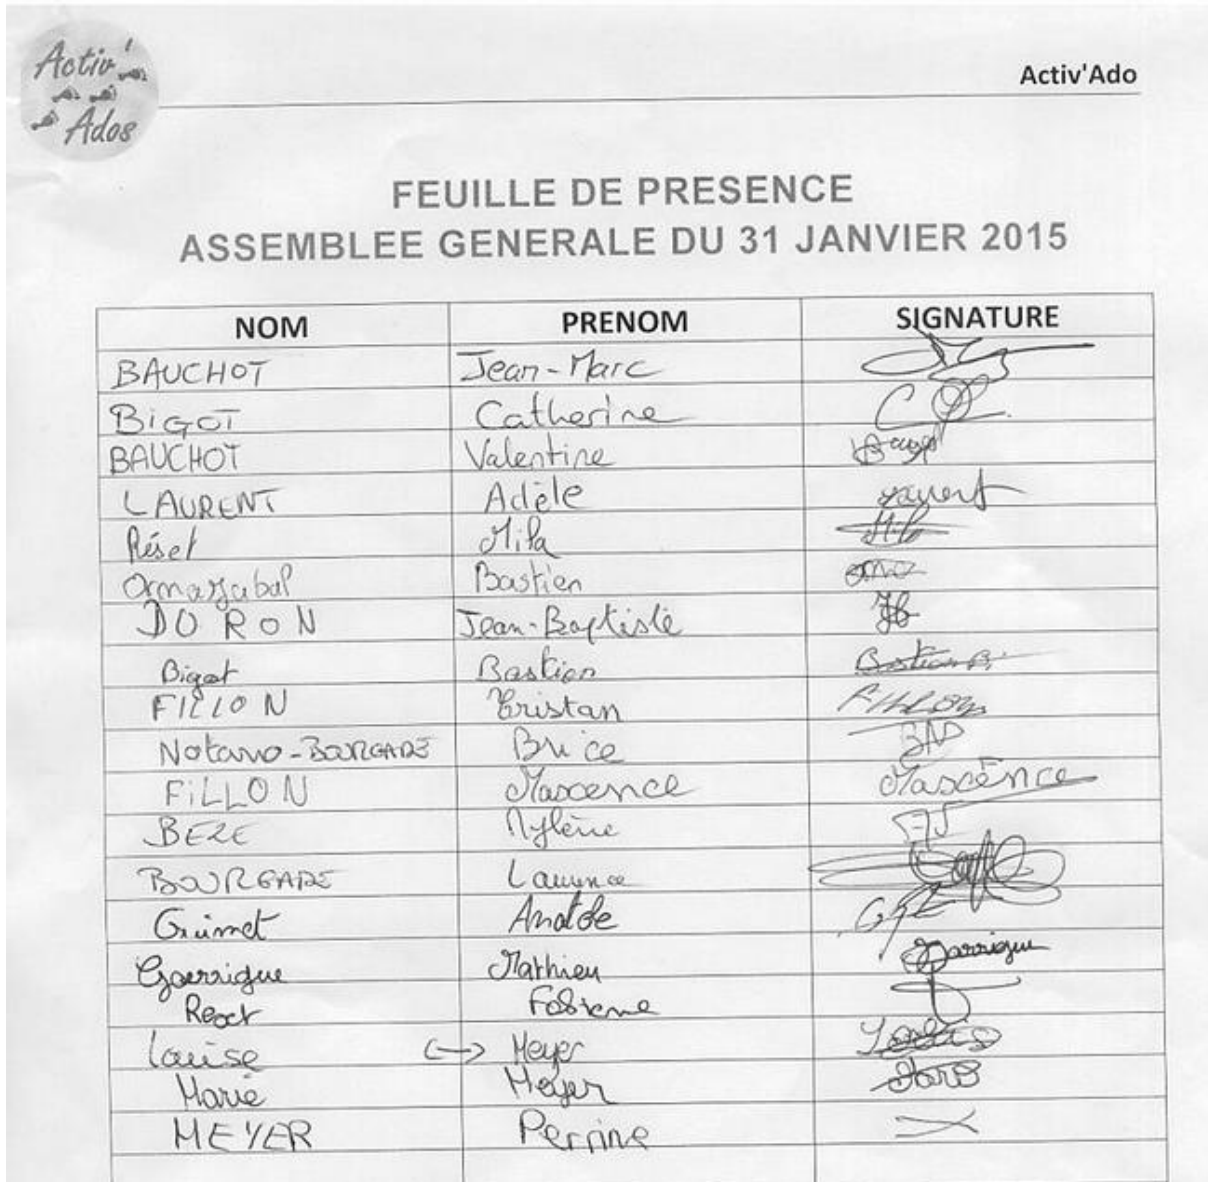 Activ'
Ados
Activ'Ado
FEUILLE DE PRESENCE
ASSEMBLEE GENERALE DU 31 JANVIER 2015
NOM PRENOM SIGNATURE
BAUCHOT Jean-Marc
BIGOT Catherine
BAUCHOT Valentine
LAURENT Adèle Laurent
Réset Mila
Ormazabal Bastien
DURON Jean-Baptiste
Bigot Bastien Bastien Bi
FILLON Tristan FILLON
Notario-BOURGADE Brice
FiLLON Maxence Maxence
BEZE Mylène
BOURGADE Laurence
Guimet Anatole
Garrigue Mathieu Garrigue
Fabienne
Louise <-> Meyer
Marie Meyer
MEYER Perrine